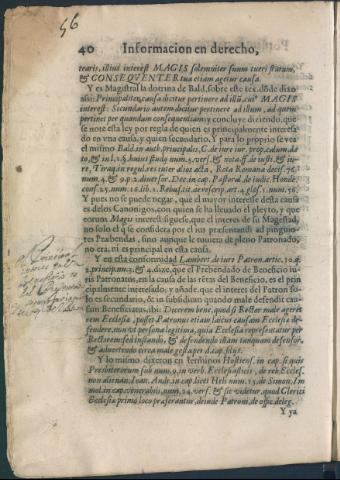 56
40 Informacion en derecho,
tearis, illius interest MAGIS solemniter suum tueri statum,
& CONSEQVENTER tua etiam agetur causa.
Y es Magistral la dotrina de Bald. sobre este tex. dõde dixo
assi: Principaliter, causa dicitur pertinere ad illũ, cui⁹ MAGIS
interest: Secundario autem dicitur pertinere ad illum, ad quem
pertinet per quandam consequentiam; y concluye diziendo, que
se note esta ley por regla de quien es principalmente interessa
do en vna causa, y quien secundario. Y para lo proprio se vea
el mismo Bald. in auth. principales, C. de iure iur. prop. calum. da
to, & in l. 1. §. huius studij num. 5. vers. & nota, ff. de iusti. & iu-
re, Tiraq. in
num. 4. & 9. p. 2. diuersor. Dec. in cap. Pastoral. de iudic. Honded.
cons. 25. num. 16. lib. 1. Rebuf. tit. de rescrip. art. 4. glos. 1. num. 36.
Y pues no se puede negar, que el mayor interesse desta causa
es delos Canonigos, con quien se ha lleuado el pleyto, y que
eorum Magis interest: sigue se, que el interes de su Magestad,
no solo el q̃ se considera por el ius præsentandi ad pingui-
tes Præbendas, sino aunque le tuuiera de pleno Patronado,
no era, ni es principal en esta causa.
Y en esta conformidad Lambert. de iure Patron. artic. 30. q.
2. principam. 3. & 4. dize, que el Prebendado de Beneficio iu
ris Patronatus, en la causa de las rẽtas del Beneficio, es el prin
cipalmente interessado; y añade, que el interes del Patron so-
lo es secundario, & in subsidium quando male defendit cau-
sam Beneficiatus, ibi: Dicerem bene, quod si Rector male ageret
rem Ecclesiæ, posset Patronus etiam late causam Ecclesiæ de-
fendere, non vt persona legitima, quia Ecclesia repræsentatur per
Rectorem sed instando, & defendendo illam tanquam defensor,
& aduertendo circa male gesta per d. cap. filijs.
Y lo mismo dixeron en terminos Hostiens. in cap. si quis
Presbiterorum sub num. 9. in verb. Ecclesiasticis, de reb. Eccles.
non alienan. Ioan. Andr. in cap. licet Heli num. 15. de Simon. Im
mol. in cap. venerabilis, num. 24. vers. & sic videtur, quod Clerici
Ecclesiæ primo loco præferantur, deinde Patroni, de offic. deleg.
Y ya